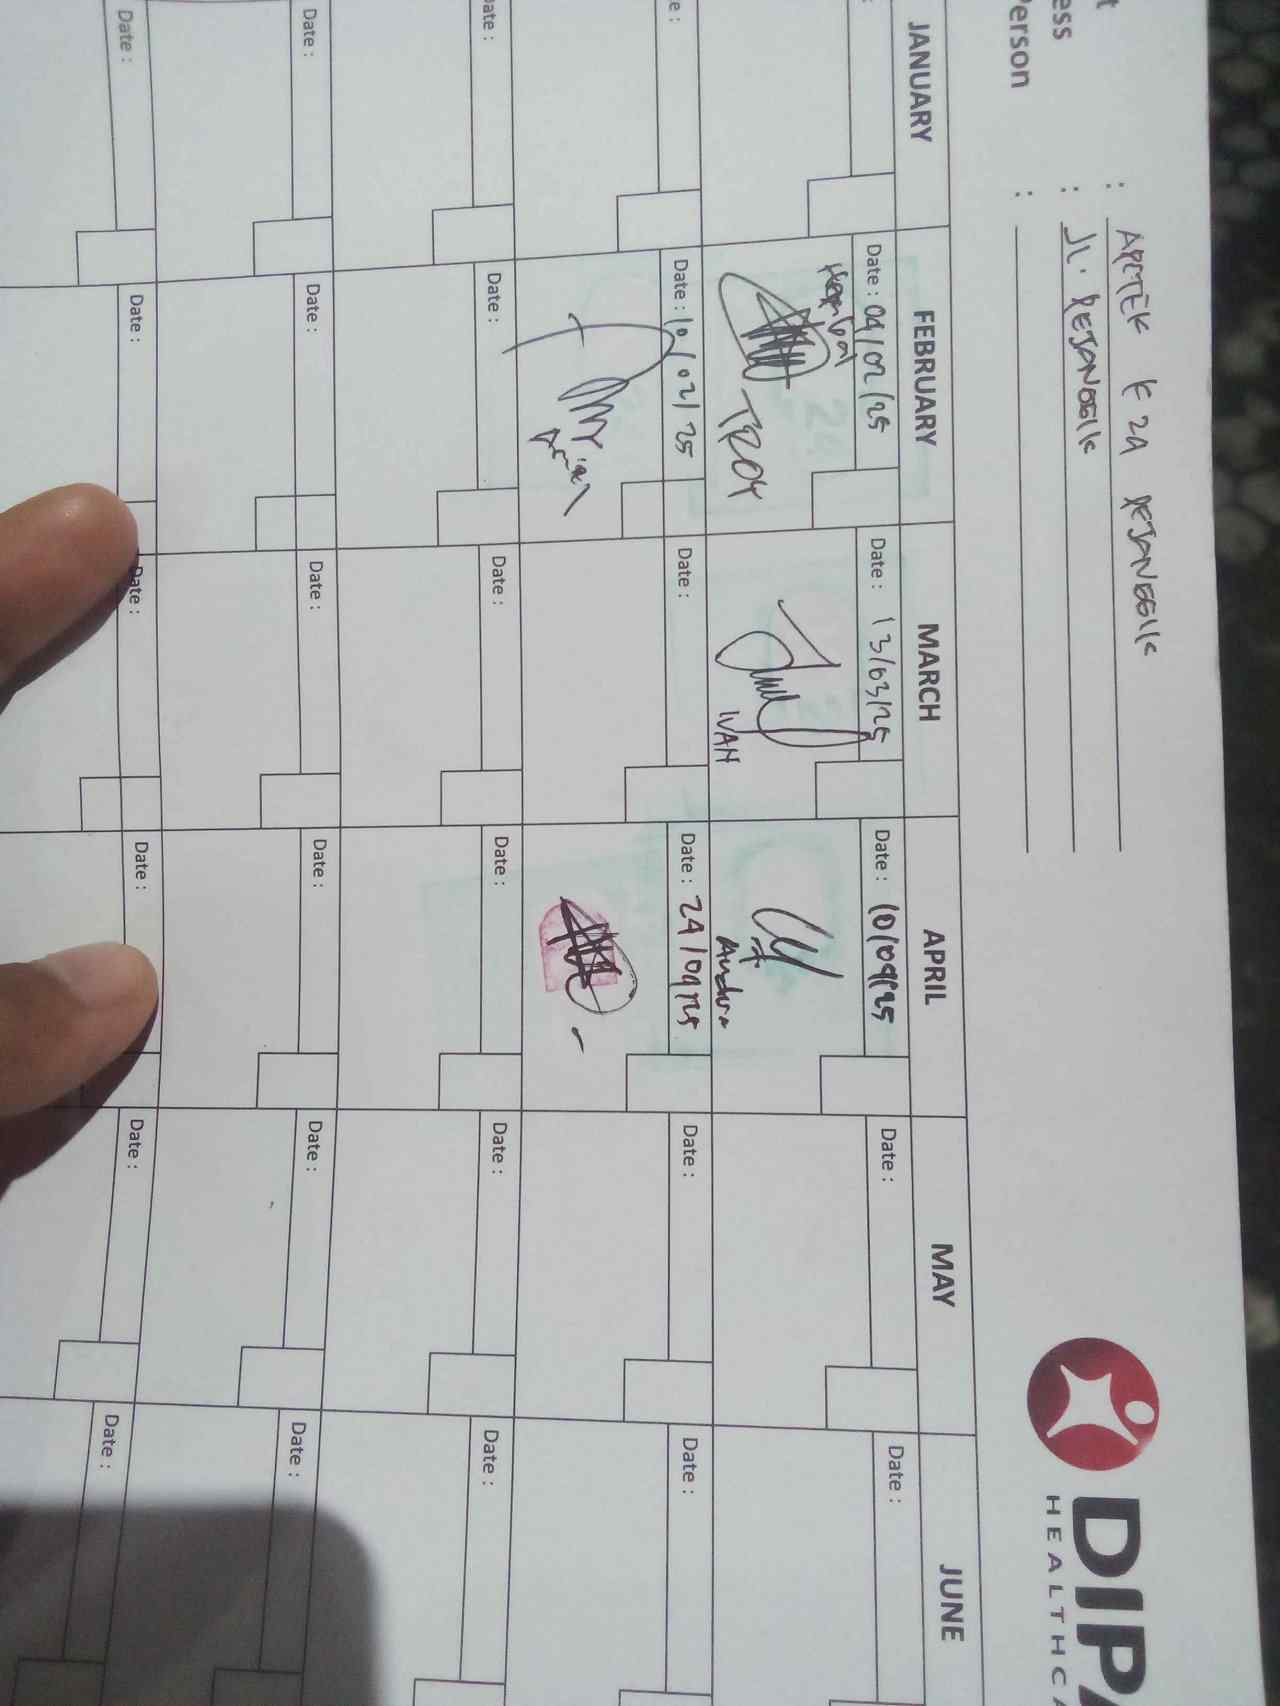 t : APOTEK K 24 REJANEGIK
ess : JL. REJANEGIK
Person :
DIPA
HEALTHCA
JANUARY FEBRUARY MARCH APRIL MAY JUNE
: Date : 04/02/25 Date : 13/03/25 Date : 10/04/25 Date : Date :
TROY IVAN
e : Date : 10/02/25 Date : Date : 24/04/25 Date : Date :
Date : Date : Date : Date : Date : Date :
Date : Date : Date : Date : Date : Date :
Date : Date : Date : Date : Date : Date :